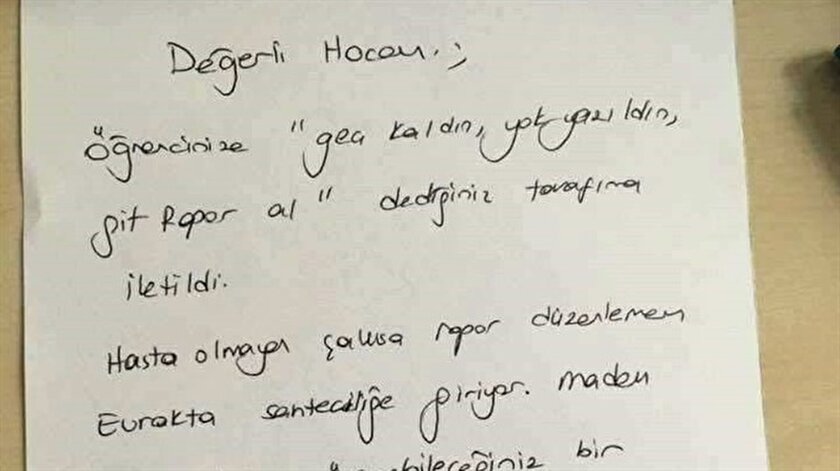 Değerli Hocam.;
Öğrencinize "geç kaldın, yok yazıldın,
git Rapor al" dediğiniz tarafıma
iletildi.
Hasta olmayan şahısa rapor düzenlemem
Evrakta sahteciliğe giriyor. maden
bir